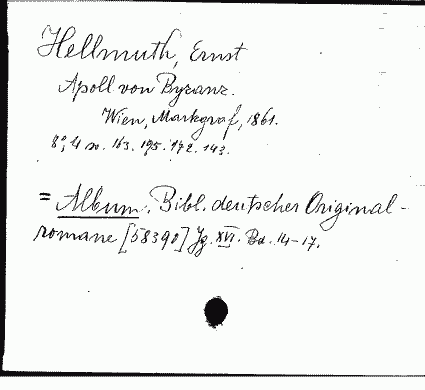 Hellmuth, Ernst
Apoll von Byzanz.
Wien, Markgraf, 1861.
8°, 4 vo. 163. 195. 172. 143.
= Album. Bibl. deutscher Original-
romane [58390] Jg. XVI. Bd. 14-17.